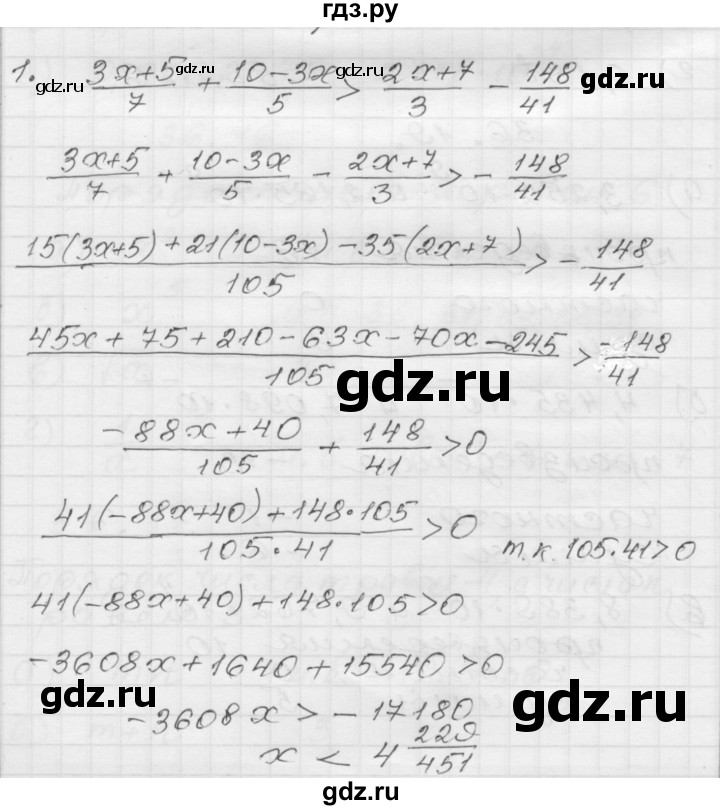 гдз.ру
1. (3x+5)/7 + (10-3x)/5 > (2x+7)/3 - 148/41
gdz.ru gdz.ru gdz.ru
(3x+5)/7 + (10-3x)/5 - (2x+7)/3 > - 148/41
(15(3x+5) + 21(10-3x) - 35(2x+7))/105 > - 148/41
(45x + 75 + 210 - 63x - 70x - 245)/105 > -148/41
gdz.ru
(-88x+40)/105 + 148/41 > 0
(41(-88x+40) + 148·105)/(105·41) > 0 т.к. 105·41>0
41(-88x+40) + 148·105 > 0
-3608x + 1640 + 15540 > 0
gdz.ru gdz.ru
-3608x > -17180
x < 4 229/451
gdz.ru